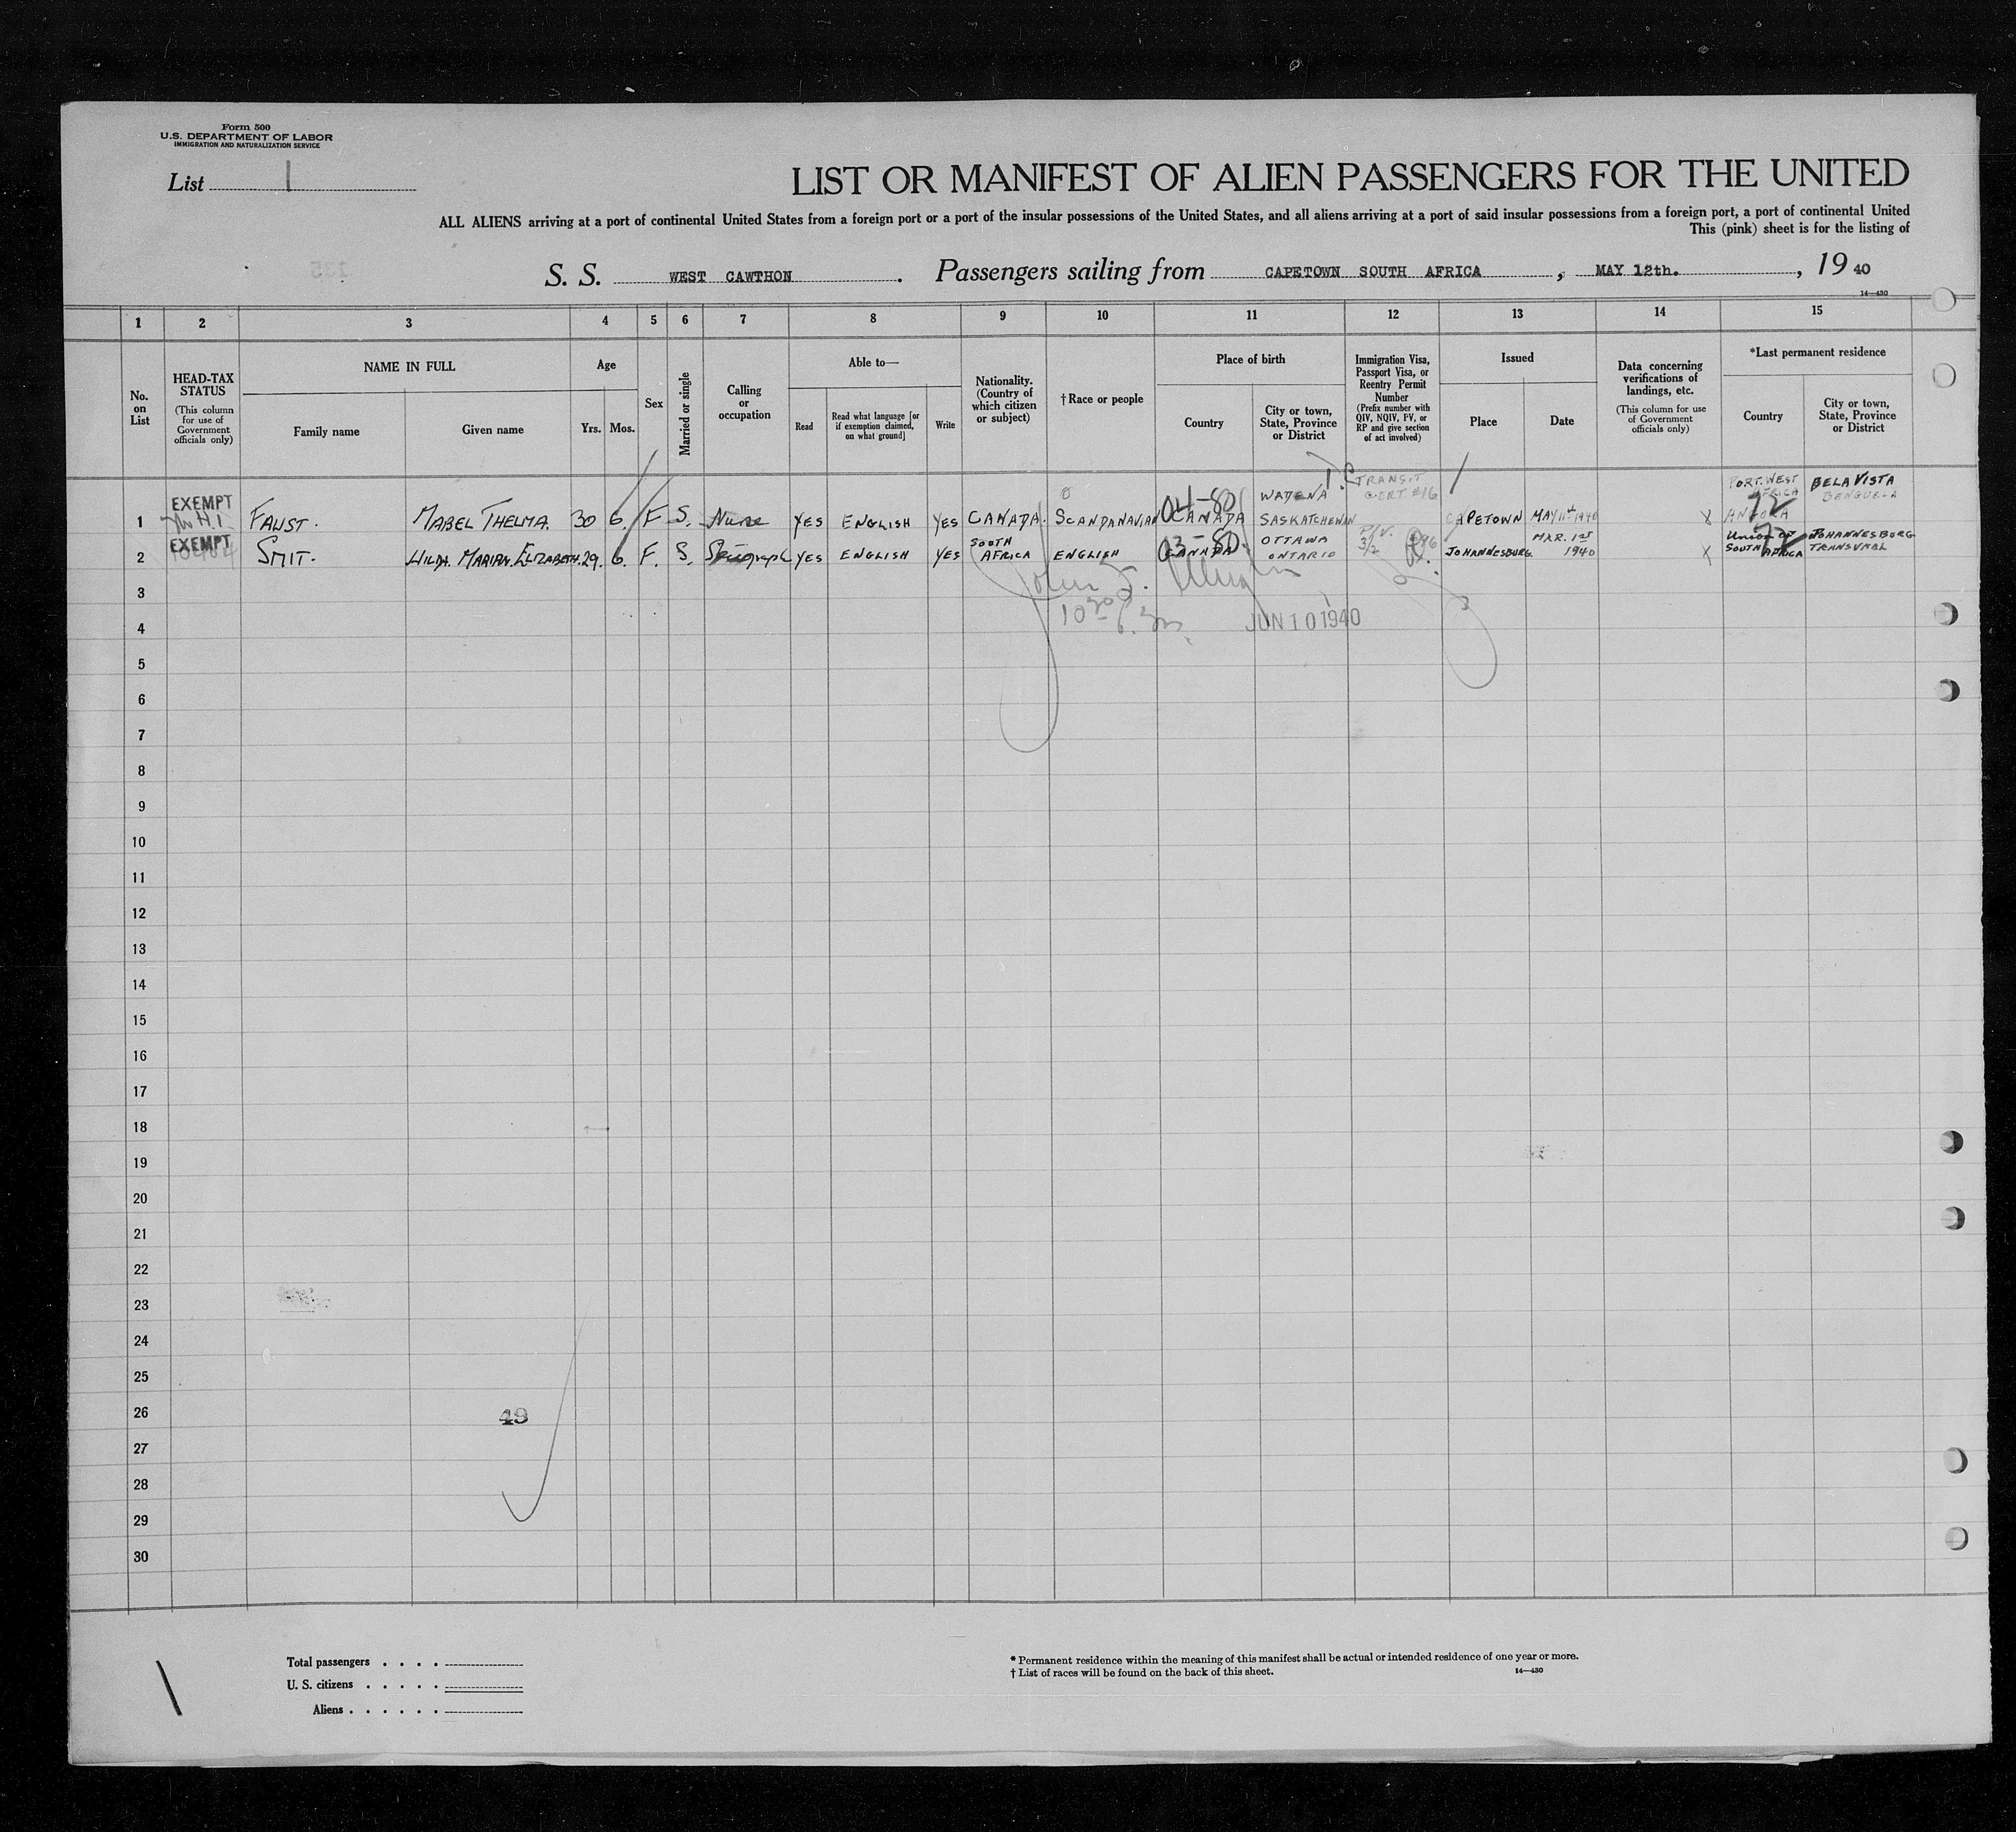 Form 500
U.S. DEPARTMENT OF LABOR
IMMIGRATION AND NATURALIZATION SERVICE
List 1
LIST OR MANIFEST OF ALIEN PASSENGERS FOR THE UNITED
ALL ALIENS arriving at a port of continental United States from a foreign port or a port of the insular possessions of the United States, and all aliens arriving at a port of said insular possessions from a foreign port, a port of continental United
This (pink) sheet is for the listing of
S. S. WEST CAWTHON. Passengers sailing from CAPETOWN SOUTH AFRICA, MAY 12th., 1940
14—430
1 2 3 4 5 6 7 8 9 10 11 12 13 14 15
No. on List
HEAD-TAX STATUS
(This column for use of Government officials only)
NAME IN FULL
Family name
Given name
Age
Yrs. Mos.
Sex
Married or single
Calling or occupation
Able to—
Read
Read what language [or if exemption claimed, on what ground]
Write
Nationality. (Country of which citizen or subject)
†Race or people
Place of birth
Country
City or town, State, Province or District
Immigration Visa, Passport Visa, or Reentry Permit Number
(Prefix number with QIV, NQIV, PV, or RP and give section of act involved)
Issued
Place
Date
Data concerning verifications of landings, etc.
(This column for use of Government officials only)
*Last permanent residence
Country
City or town, State, Province or District
1 EXEMPT FAUST. MABEL THELMA. 30 6. F S. Nurse YES ENGLISH YES CANADA. SCANDANAVIAN CANADA 04-80 WADENA SASKATCHEWAN TRANSIT CERT #16 CAPETOWN MAY 11th 1940 X PORT. WEST AFRICA ANGOLA 72 BELA VISTA BENGUELA
2 EXEMPT SMIT. HILDA. MARIAN. ELIZABETH. 29. 6. F. S. YES ENGLISH YES SOUTH AFRICA ENGLISH CANADA 03-80. OTTAWA ONTARIO P/V. 3/2 JOHANNESBURG MAR. 1st 1940 X UNION OF SOUTH AFRICA 72 JOHANNESBURG TRANSVAAL
3
4 JUN 10 1940
5
6
7
8
9
10
11
12
13
14
15
16
17
18
19
20
21
22
23
24
25
26 49
27
28
29
30
Total passengers . . . .
U. S. citizens . . . . .
Aliens . . . . . .
* Permanent residence within the meaning of this manifest shall be actual or intended residence of one year or more.
† List of races will be found on the back of this sheet.
14—430